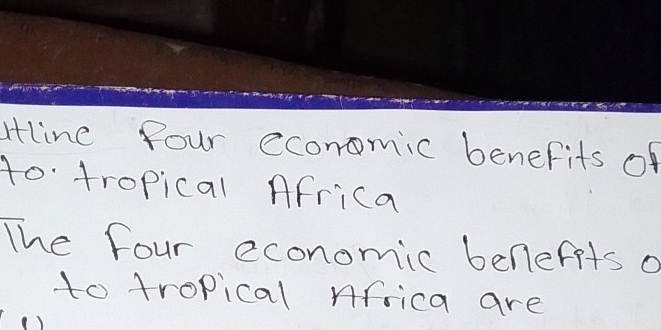 utline four economic benefits of
to tropical Africa
The four economic benefits o
to tropical Africa are